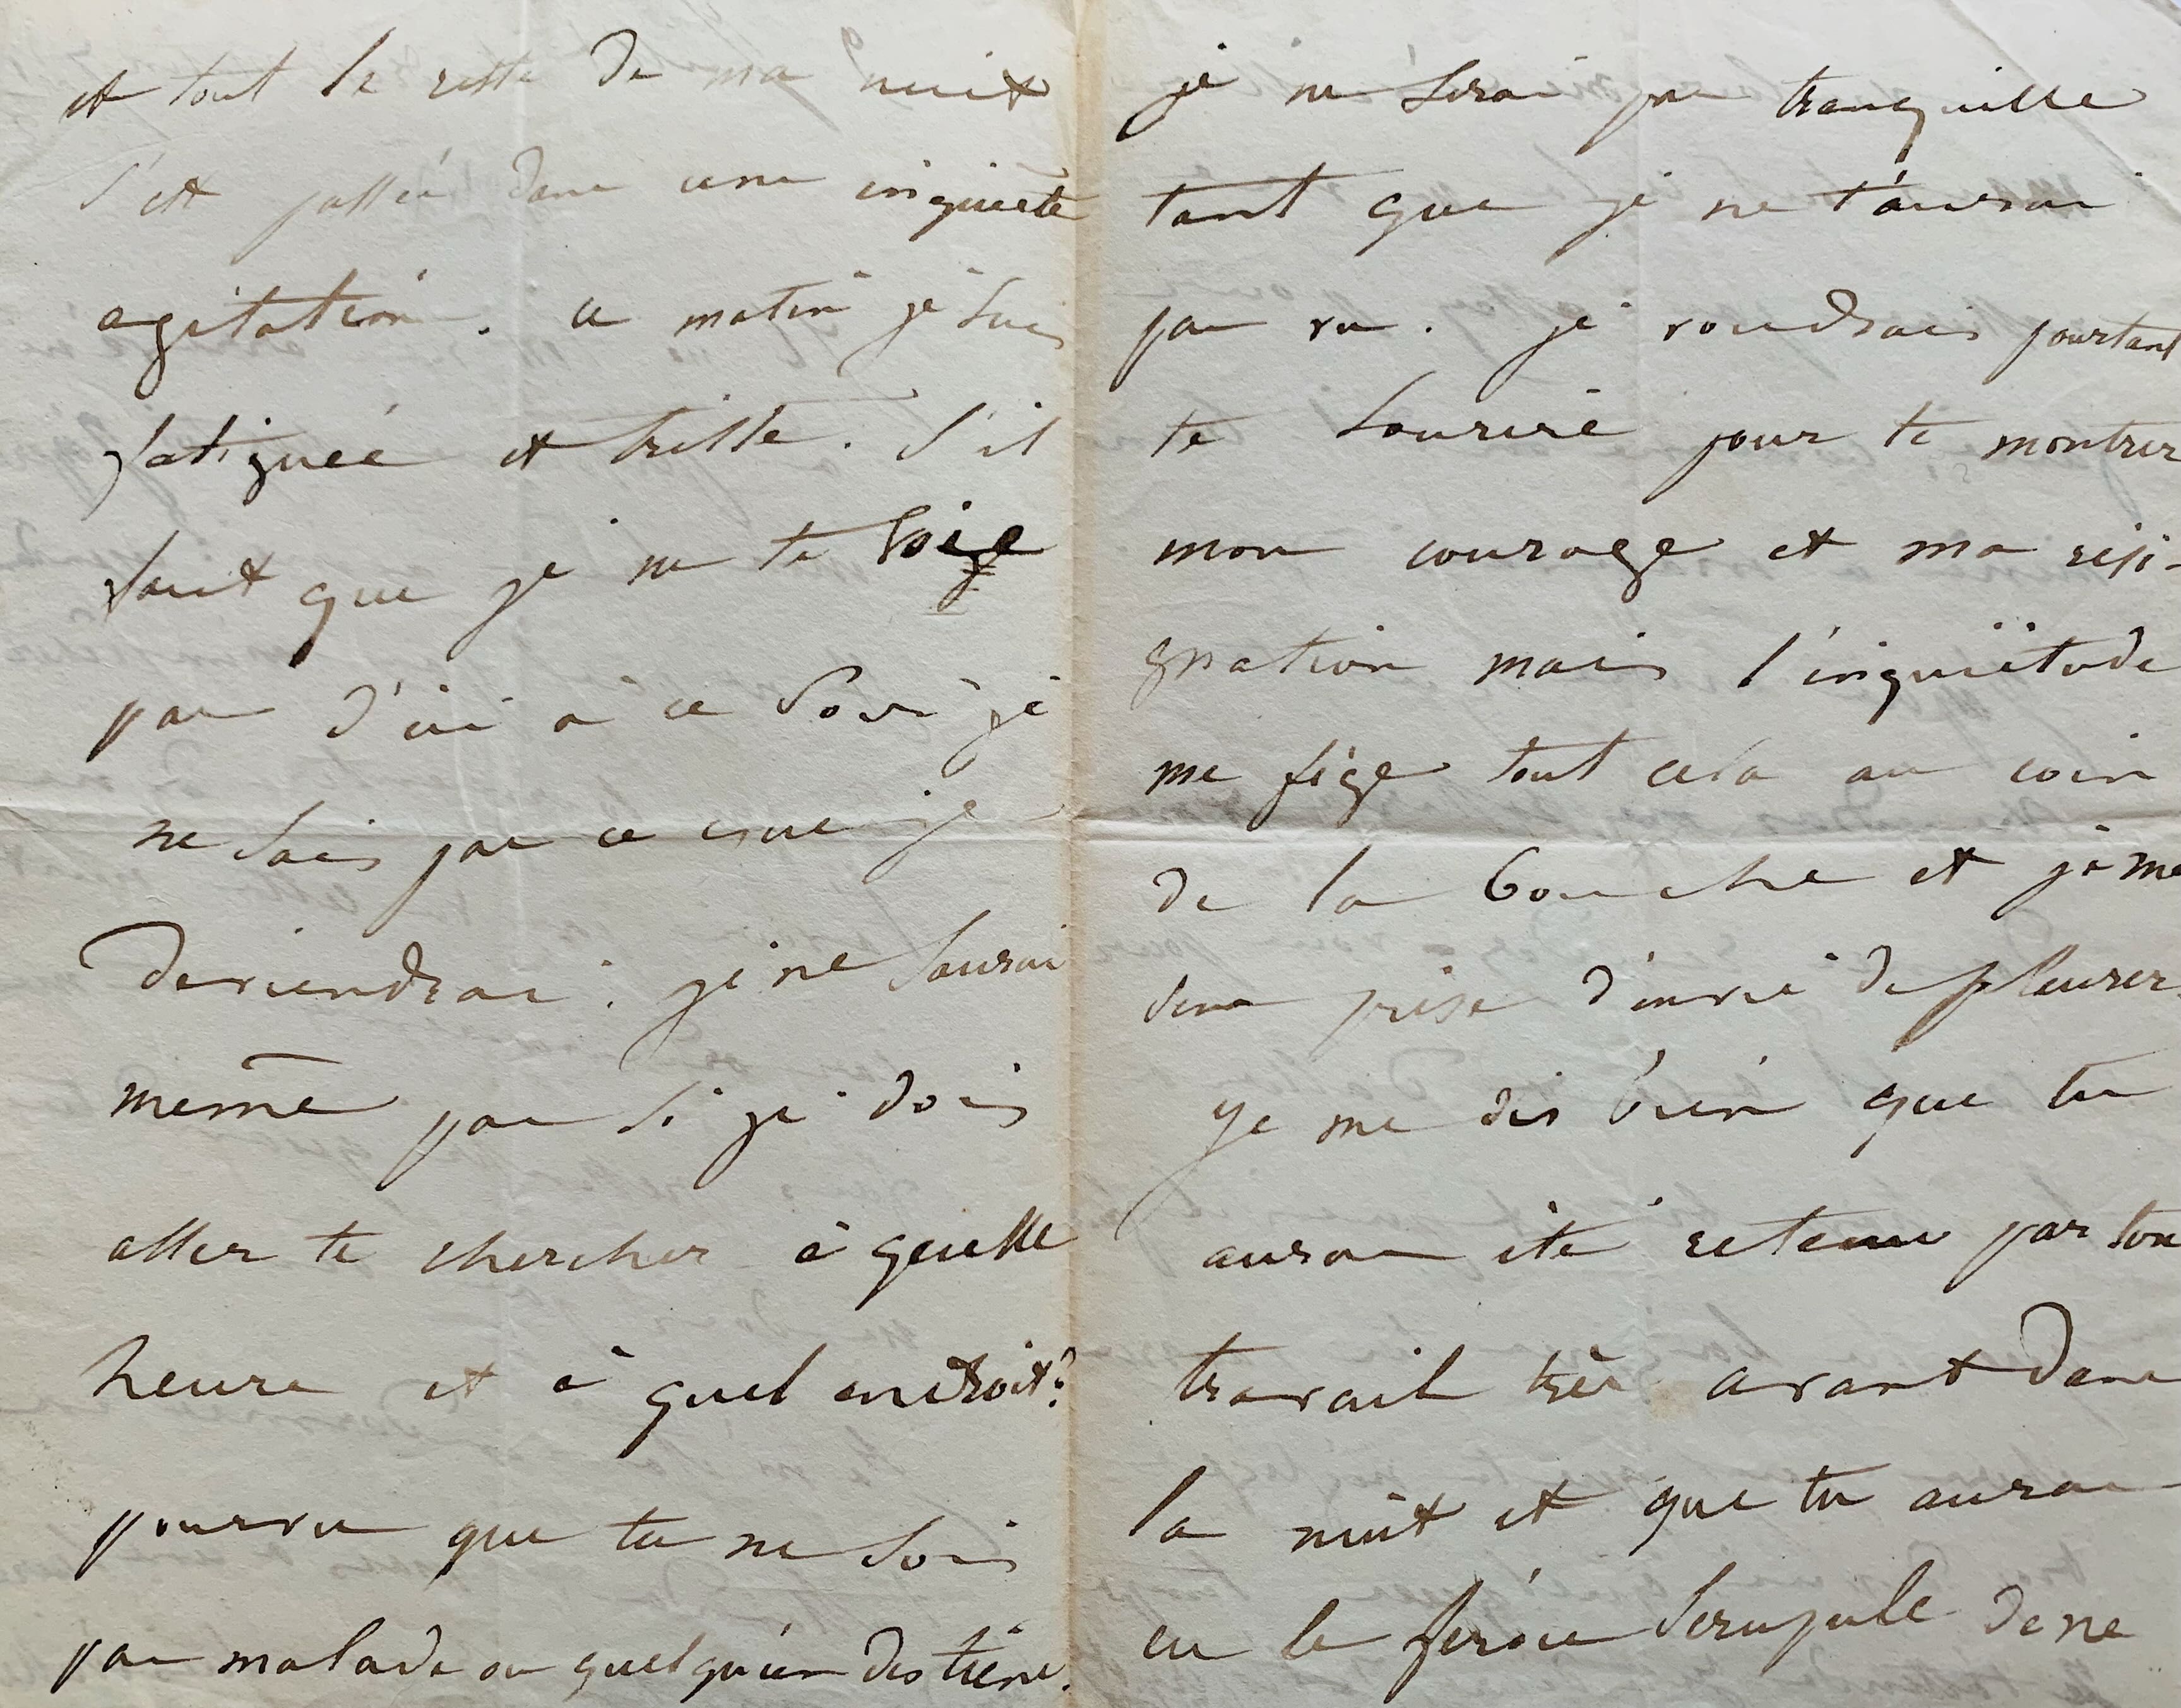 et tout le reste de ma nuit
s'est passée dans une inquiète
agitation. Ce matin je suis
fatiguée et triste. S'il
faut que je ne te voie
pas d'ici à ce soir je
ne sais pas ce que je
deviendrai. je ne saurai
même pas si je dois
aller te chercher à quelle
heure et à quel endroit?
pourvu que tu ne sois
pas malade ou quelqu'un des tiens.
je ne serai pas tranquille
tant que je ne t'aurai
pas vu. je voudrais pourtant
te sourire pour te montrer
mon courage et ma rési-
gnation mais l'inquiétude
me fige tout cela au coin
de la bouche et je me
sens prise d'envie de pleurer.
Je me dis bien que tu
auras été retenu par ton
travail très avant dans
la nuit et que tu auras
eu le féroce scrupule de ne